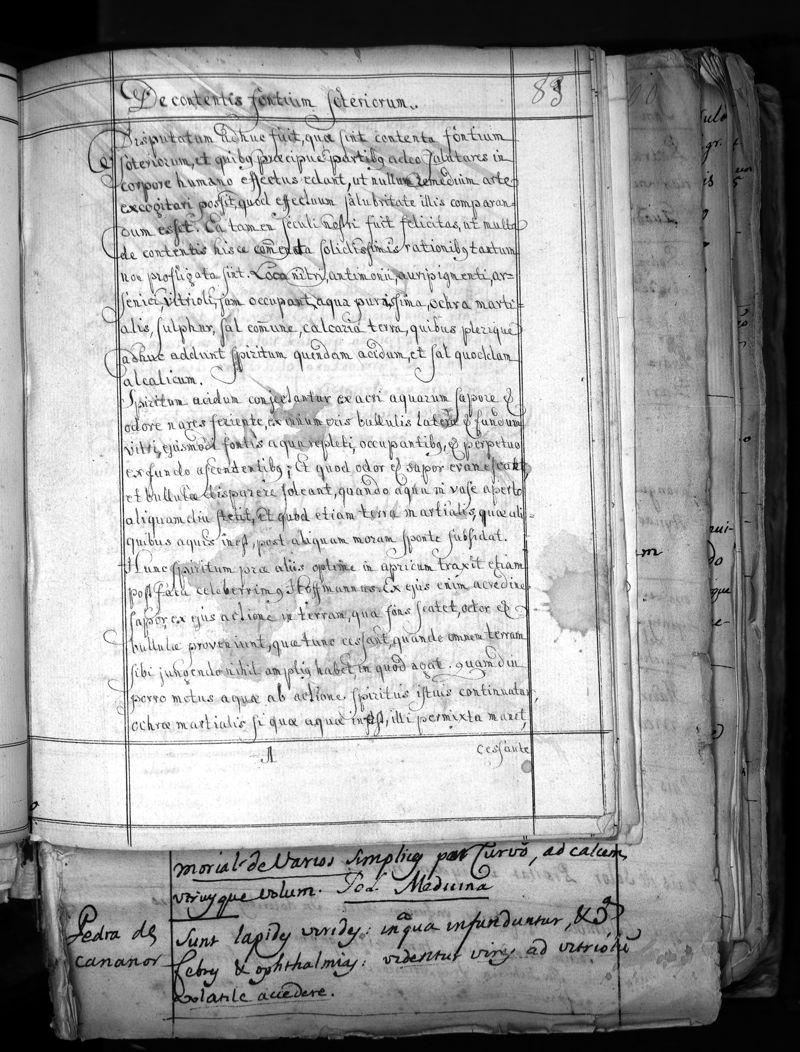 De contentis fontium soteriorum.
83
Disputatum adhuc fuit, quæ sint contenta fontium
soteriorum, et quibꝰ præcipue partibꝰ adeo salutares in
corpore humano effectus edant, ut nullum remedium arte
excogitari possit, quod effectuum salubritate illis comparan-
dum esset. Ea tamen seculi nostri fuit felicitas, ut multa
de contentis hisce com̅enta solidissimis rationibꝰ tantum
non profligata sint. Loca nitri, antimonii, auripigmenti, ar-
senici, vitrioli, jam occupant, aqua purissima, ochra marti-
alis, sulphur, sal com̅une, calcaria terra, quibus plerique
adhuc addunt spiritum quendam acidum, et sal quoddam
alcalicum.
Spiritum acidum conjectantur ex acri aquarum sapore &
odore nares feriente, ex innumeris bullulis latera & fundum
vitri, ejusmodi fontis aqua repleti, occupantibꝰ, & perpetuo
ex fundo ascendentibꝰ; Et quod odor & sapor evanescant
et bullulæ disparere soleant, quando aqua in vase aperto
aliquamdiu stetit, et quod etiam terra martialis, quæ ali-
quibus aquis inest, post aliquam moram sponte subsidat.
Hunc spiritum præ aliis optime in apricum traxit etiam
post fata celeberrimꝰ Hoffmannus. Ex ejus enim acredine
sapor ex ejus actione in terram, qua fons scatet, odor &
bullulæ proveniunt, quæ tunc cessant, quando omnem terram
sibi jungendo nihil ampliꝰ habet in quod agat. quamdiu
porro motus aquæ ab actione spiritus istius continuatur,
ochræ martialis si quæ aquæ inest, illi permixta manet,
A
cessante
morial de Varios simplicꝰ par Curvo, ad calcem
utriusque volum. Pol. Medicina
Pedra de
cananor
Sunt lapides virides: in aqua infunduntur, &
febres & ophthalmias: videntur vires ad vitriolu̅
volatile accedere.